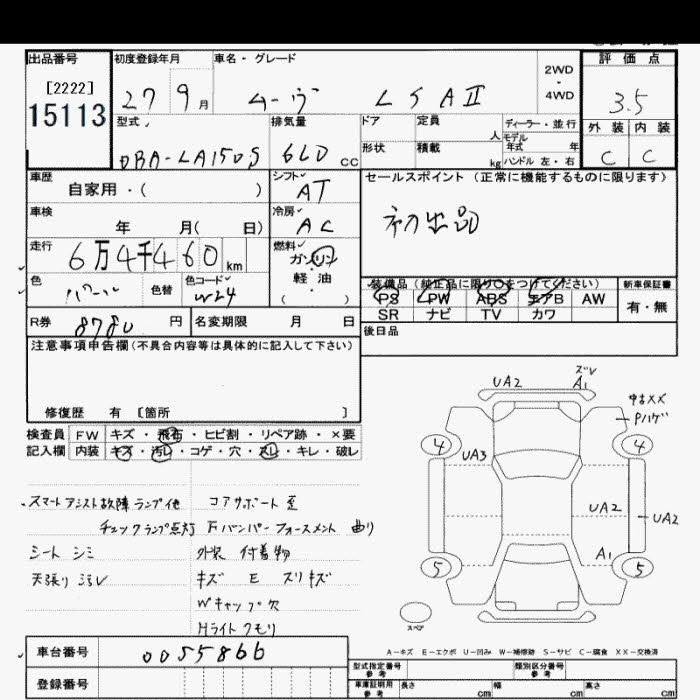 出品番号 初度登録年月 車名・グレード 2WD ・ 4WD 評価点
[2222] 15113 27 9月 ムーヴ L SAⅡ 3.5
型式 排気量 ドア 定員 人 ディーラー・並行 外装 内装
DBA-LA150S 660 cc 形状 積載 kg モデル年式 年 ハンドル 左・右 C C
車歴 自家用・( ) シフト AT セールスポイント (正常に機能するものに限ります)
車検 年 月( 日) 冷房 AC 初出品
走行 6万4千460 km 燃料 ガソリン 軽油 ( )
色 パール 色替 色コード W24 装備品 (純正品に限り○をつけてください) 新車保証書
PS PW ABS エアB AW 有・無
R券 8780 円 名変期限 月 日 SR ナビ TV カワ
後日品
注意事項申告欄(不具合内容等は具体的に記入して下さい)
修復歴 有 [箇所 ]
検査員 FW キズ・飛石・ヒビ割・リペア跡・×要
記入欄 内装 キズ・汚レ・コゲ・穴・スレ・キレ・破レ
UA2 ズレ A1
中古××
Pハゲ
4 UA3 4
UA2 UA2
A1
5 5
スペア
スマートアシスト故障ランプ他 コアサポート歪
チェックランプ点灯 Fバンパーフォースメント 曲り
シート シミ 外装 付着物
天張り 汚レ キズ E スリキズ
Wキャップ欠
Hライトクモリ
A-キズ E-エクボ U-凹み W-補修跡 S-サビ C-腐食 XX-交換済
車台番号 0055866 型式指定番号 参考 類別区分番号 参考
登録番号 車庫証明用 参考 長さ cm 幅 cm 高さ cm